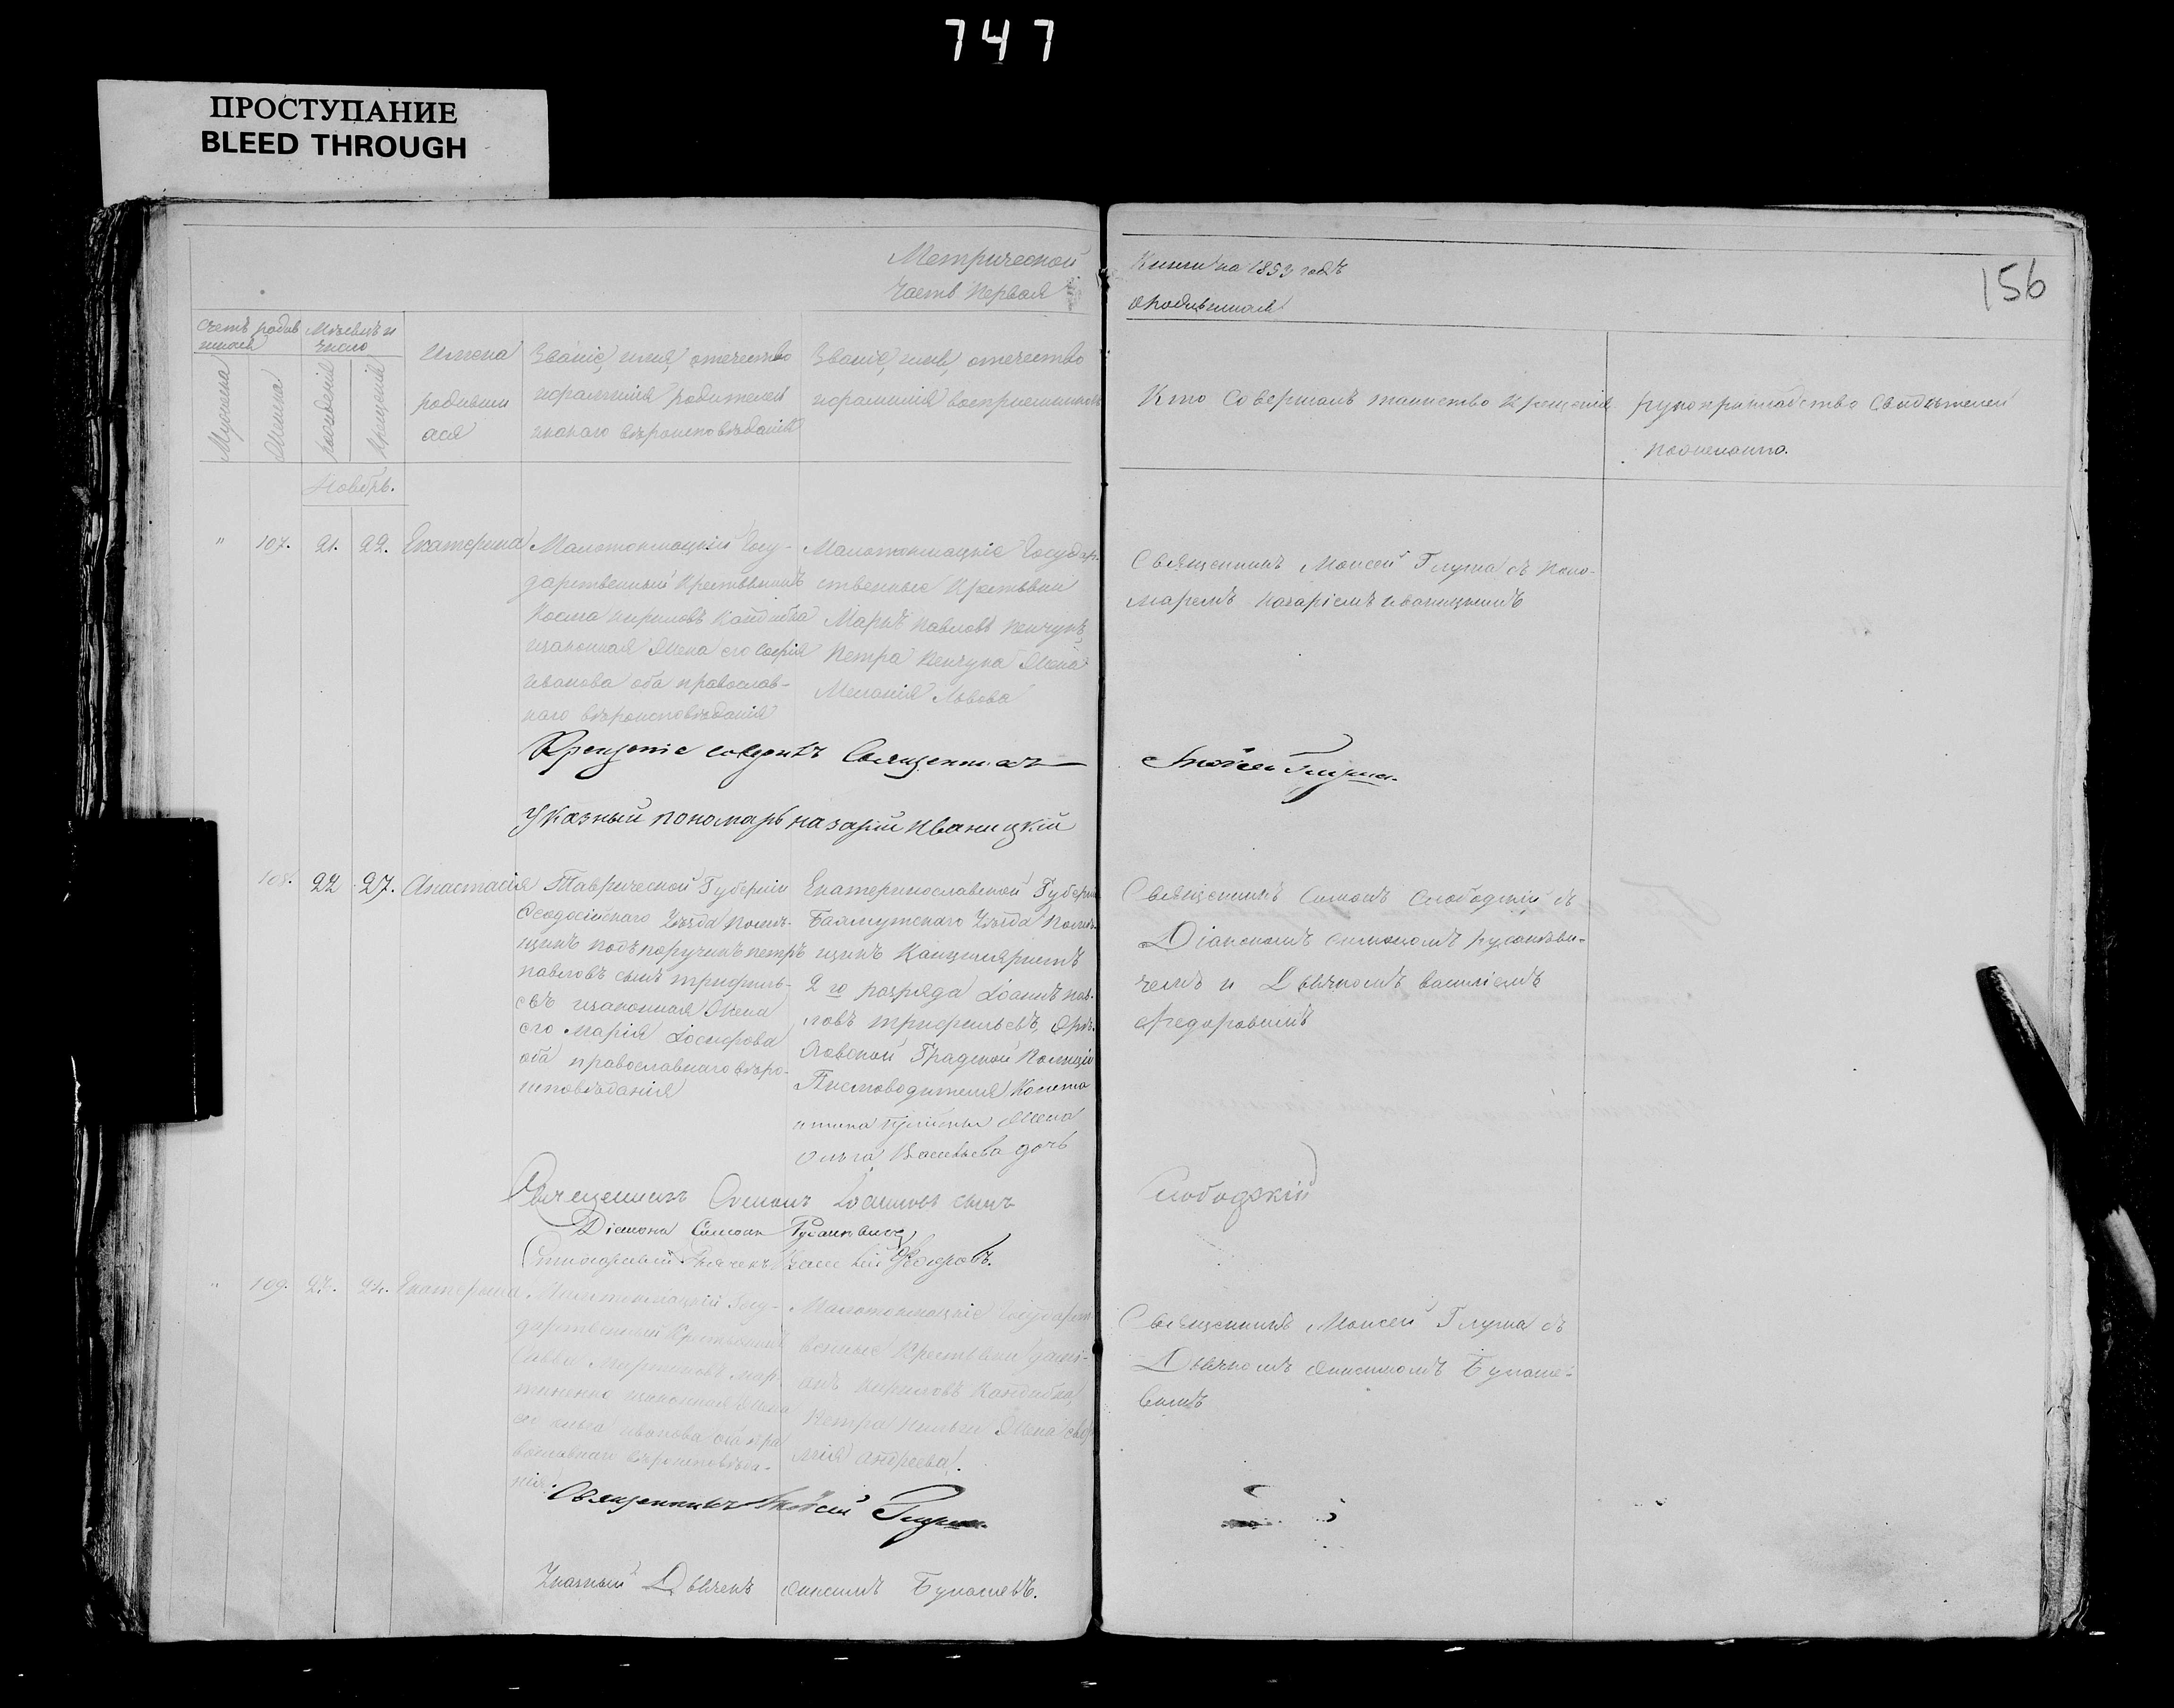 747
ПРОСТУПАНИЕ
BLEED THROUGH
156
Метрической
Часть Первая
Книги на 1853 годъ
о родившихся
Счетъ родив
шихся
Мѣсяцъ и
число
Мужеска
Женска
рожденія
крещенія
Имена
родивши
хся
Званіе, имя, отечество
и фамилія родителей
и какаго вѣроисповѣданія
Званіе, имя, отечество
и фамилія воспріемников
Кто Совершалъ таинство Крещенія
рукоприкладство Свидѣтелей
по желанію.
Ноябрь.
" 107. 21. 22. Екатерина
Малотокмацкій Госу-
дарственный Крестьянинъ
Косма Кириловъ Кандиба
и законная Жена его Софія
Иванова оба православ-
наго вѣроисповѣданія
Малотокмацкіе Государ-
ственные Крестьяни
Павловъ
Петра Жена
Меланія Львова
Священникъ Моисей Глума съ Поно-
маремъ Назаріемъ Иваницкимъ
Крещеніе соверш. Священникъ
Моисей Глума.
Указный пономарь назарій Иваницкій
108. 22 27. Анастасія
Таврической Губерніи
Феодосійскаго Уѣзда Помѣ-
щикъ подъпоручикъ петръ
павловъ сынъ трифиль-
евъ и законная Жена
его Марія
оба православнаго вѣро-
исповѣданія
Екатеринославской Губерніи
Бахмутскаго Уѣзда Помѣ-
щикъ Канцеляристъ
2 го разряда Іоаннъ пав-
ловъ трифильевъ, Орѣ-
ховской Градской Полиціи
Писмоводителя Конста
нтина Жена
Ольга Васильева дочь
Священникъ Симонъ Слободскій съ
Діакономъ Симономъ Русанови-
чемъ и Дьячкомъ василіемъ
Федоровымъ
Священникъ Симонъ Іоанновъ сынъ
Слободскій
Діаконъ Симонъ Русановичъ
Дьячекъ Василій Федоровъ.
" 109. 24. Екатерина
Малотокмацкій Госу-
дарственный Крестьянинъ
Савва Мартиновъ Мар-
тиненко и законная Жена
Иванова оба пра
вославнаго вѣроисповѣда-
нія.
Малотокмацкіе Государст
венные Крестьяни
Кириловъ Кандиба,
Петра Жена
Андреева.
Священникъ Моисей Глума съ
Дьячкомъ Онисимомъ
Священникъ Моисей Глума
Указный Дьячекъ Онисимъ